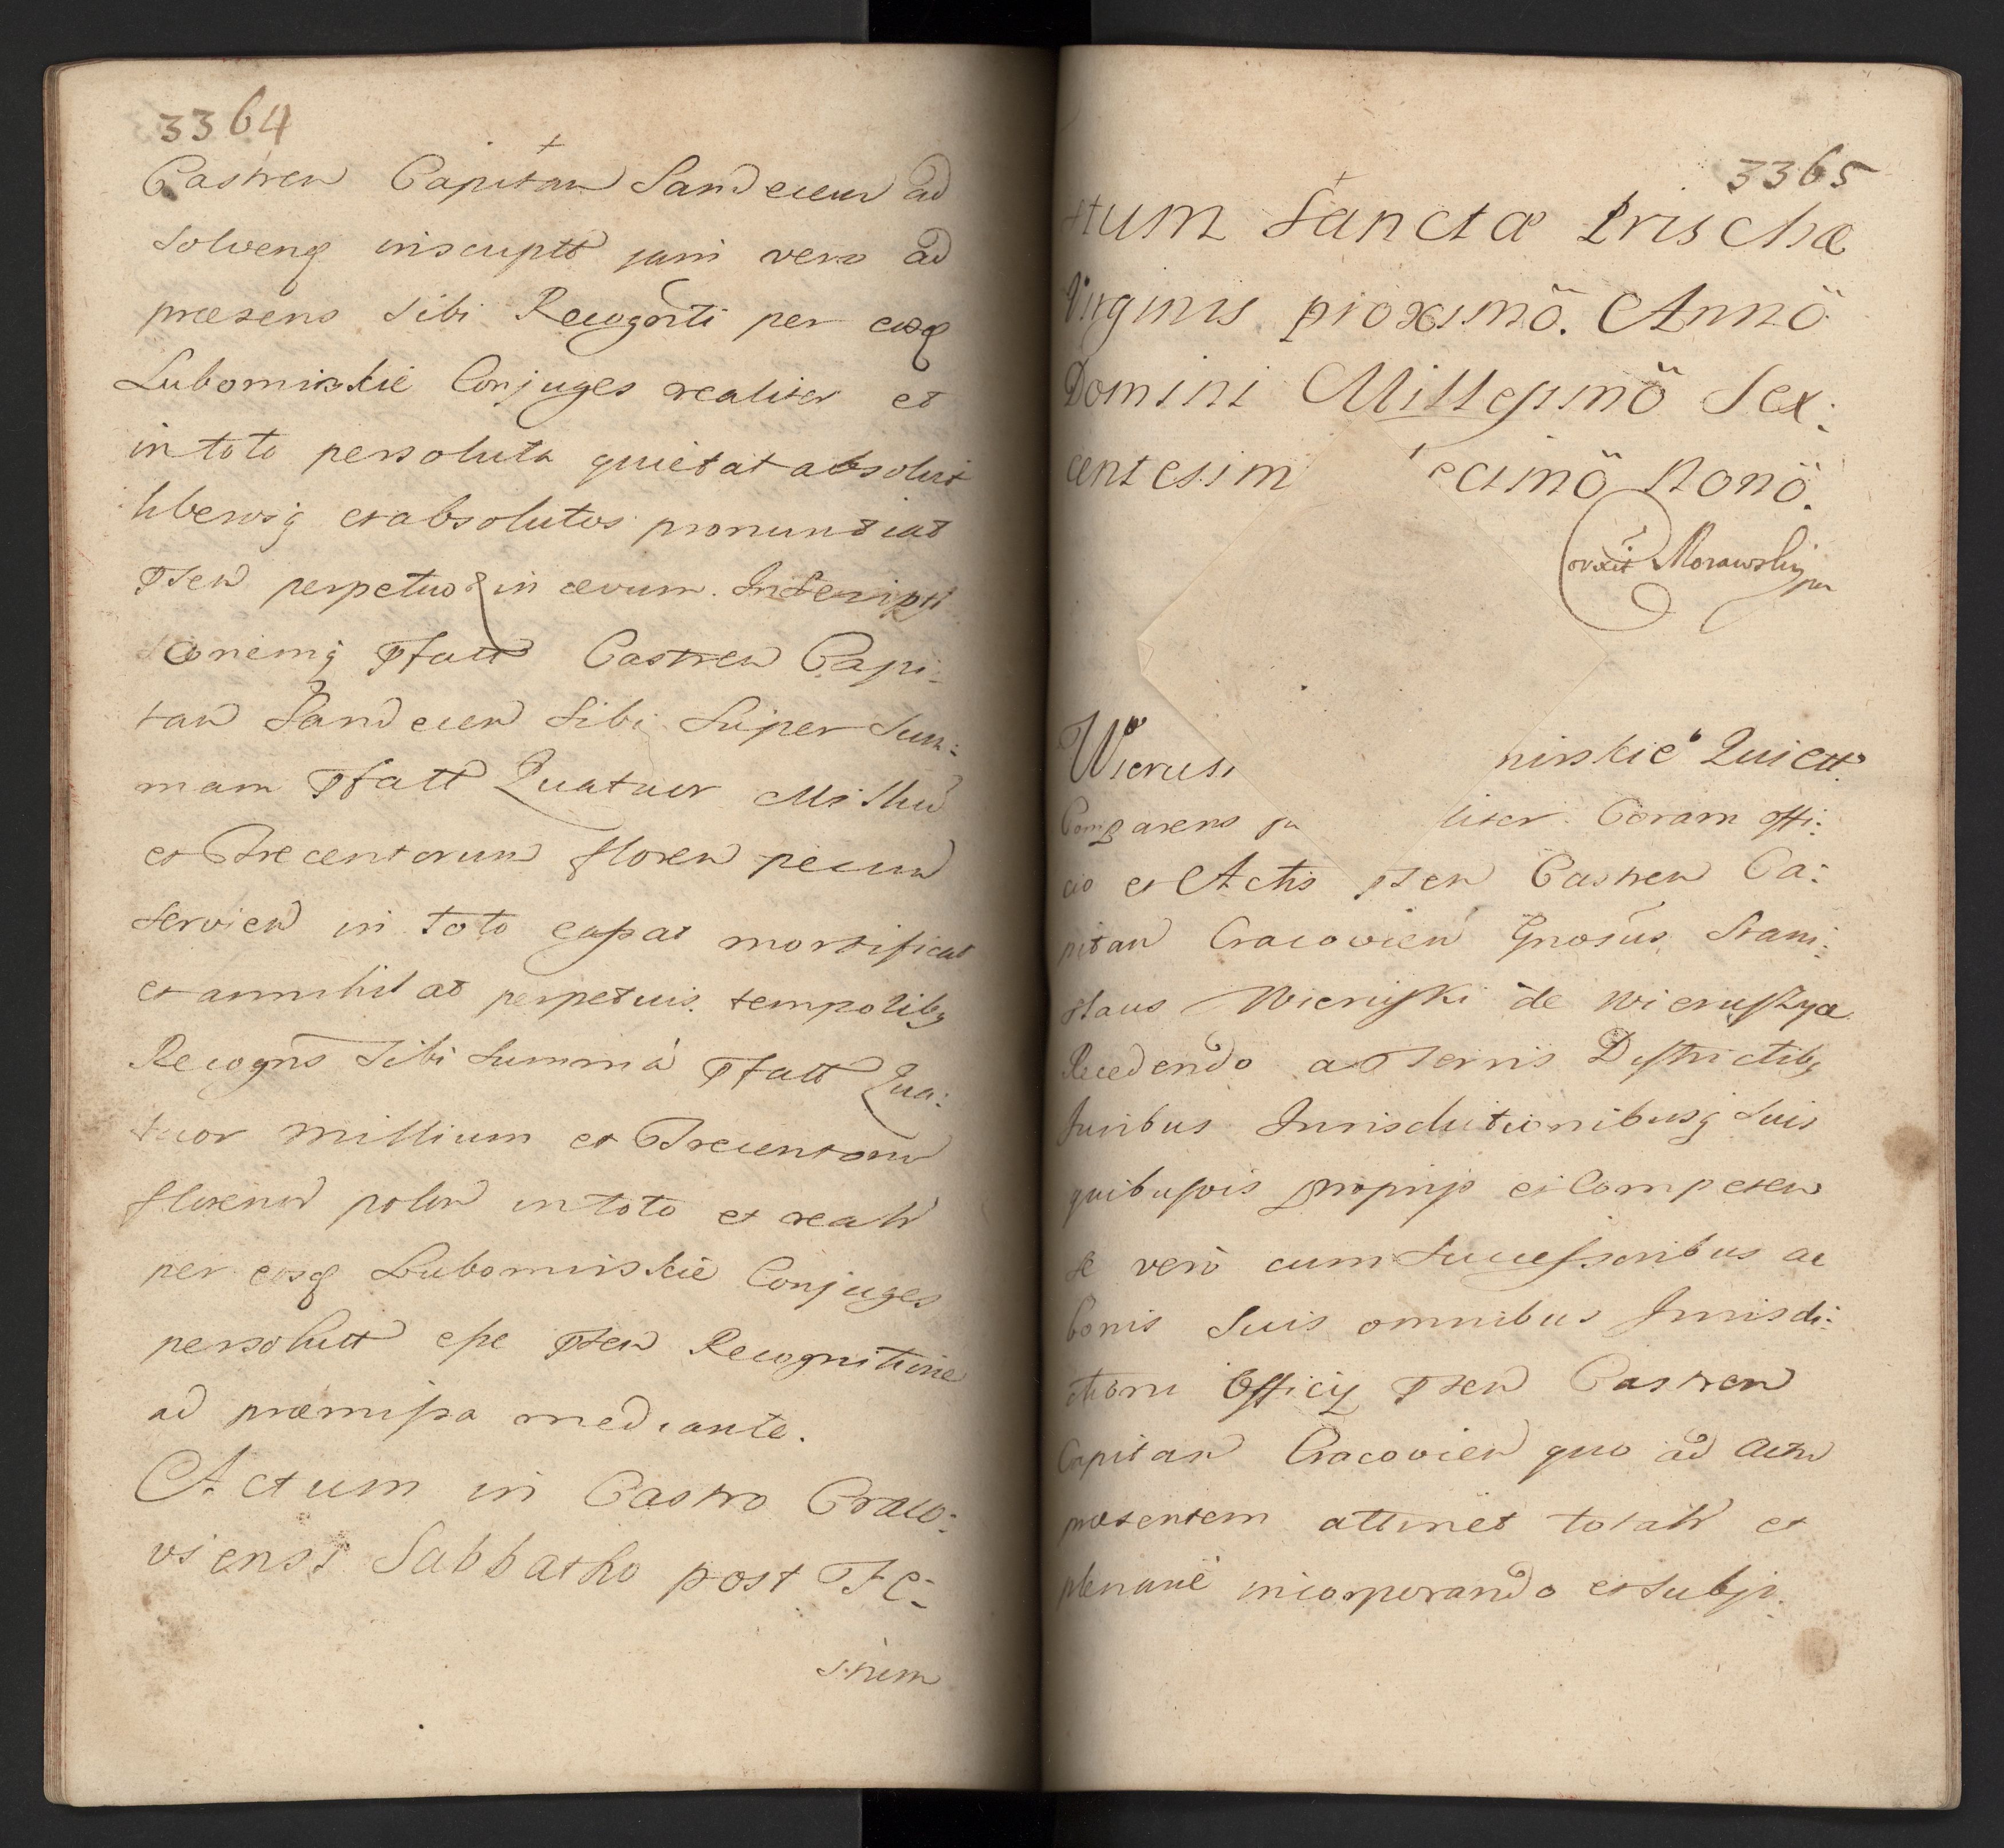 3364
Castren Capitan Sandecen ad
solvenq inscriptt jam vero ad
præsens sibi Recognti per eosq
Lubomirskie Conjuges realiter et
in toto persoluta quietat absolvit
liberosq et absolutos pronuntiat
pñtem perpetuo & in ævum. Inscripti
onemq pfatt Castren Capi:
tan Sandecen sibi super Sum:
mam pfatt Quatuor Milliu
et Trecentorum floren pecun
servien in toto cassat mortificat
et annihilat perpetuis temporibq
Recogns sibi summa pfatt Qua:
tuor millium et Trecentoru
florenor polon in toto et realr
per eosq Lubomirskie Conjuges
persolutt esse pñten Recognitione
ad præmissa mediante.
Actum in Castro Craco:
viensi Sabbatho post Fe:
stum
3365
stum Sanctæ Prischæ
Virginis proximo. Anno
Domini Millesimo Sex:
centesim ecimo Nono.
Coraxit Morawsky
Wierus nirskie Quiett
Comparens liter Coram offi:
cio et Actis pñten Castren Ca:
pitan Cracovien Gnosus Stani:
slaus Wieruski de Wieruszyce
Recedendo a Terris Districtibq
Juribus Jurisdictionibusq suis
quibusvis proprijs ei Competen
se vero cum Successoribus ac
bonis suis omnibus Jurisdi:
ctioni Officij pñten Castren
Capitan Cracovien quo ad actu
præsentem attinet totalr et
plenarie incorporando et subji: